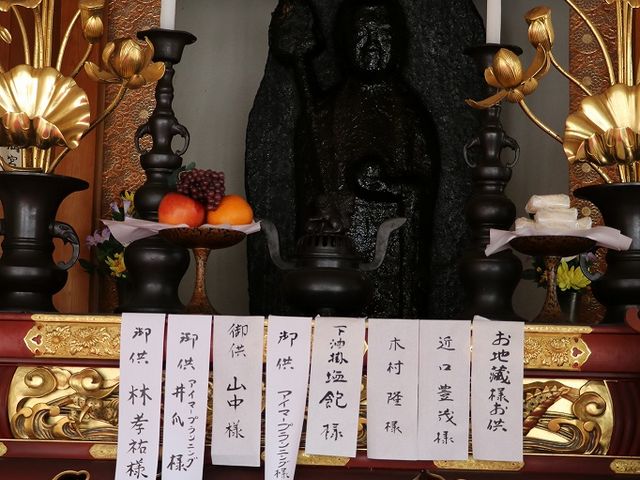 お地蔵様お供
近口豊茂様
木村隆様
下油掛塩飽様
御供 アイマープランニング
御供 山中様
御供 アイマープランニング 井爪様
御供 林孝祐様